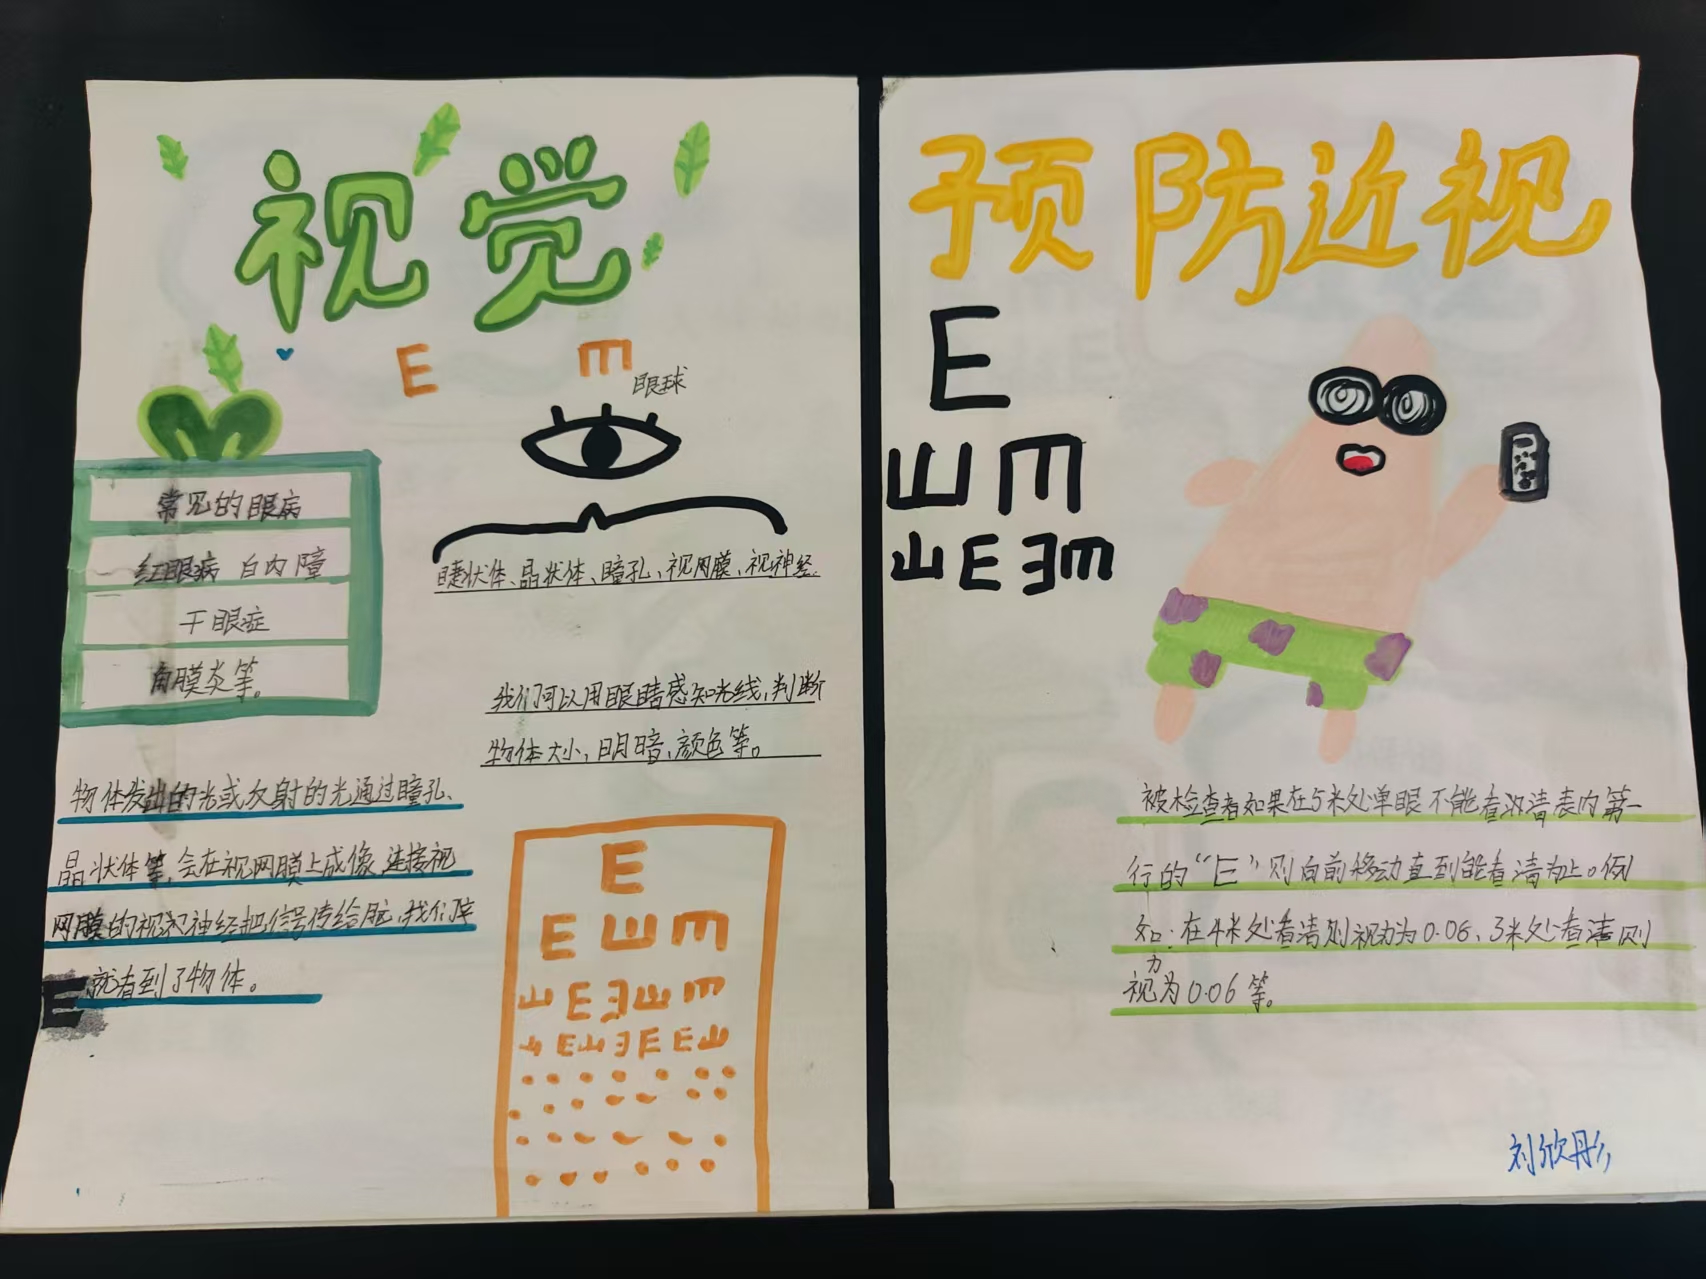 视觉
E E
眼球
常见的眼病
红眼病 白内障
干眼症
角膜炎等。
睫状体、晶状体、瞳孔、视网膜、视神经.
我们可以用眼睛感知光线,判断
物体大小,明暗,颜色等。
物体发出的光或反射的光通过瞳孔、
晶状体等,会在视网膜上成像,连接视
网膜的视神经把信号传给脑,我们
就看到了物体。
E
E
E E E
E E E E E
E E E E E E E
预防近视
E
E E
E E E E
被检查者如果在5米处单眼不能看清表内第一
行的“E”则向前移动直到能看清为止。例
如:在4米处看清则视力为0.06、3米处看清则
视力为0.06等。
刘欣彤